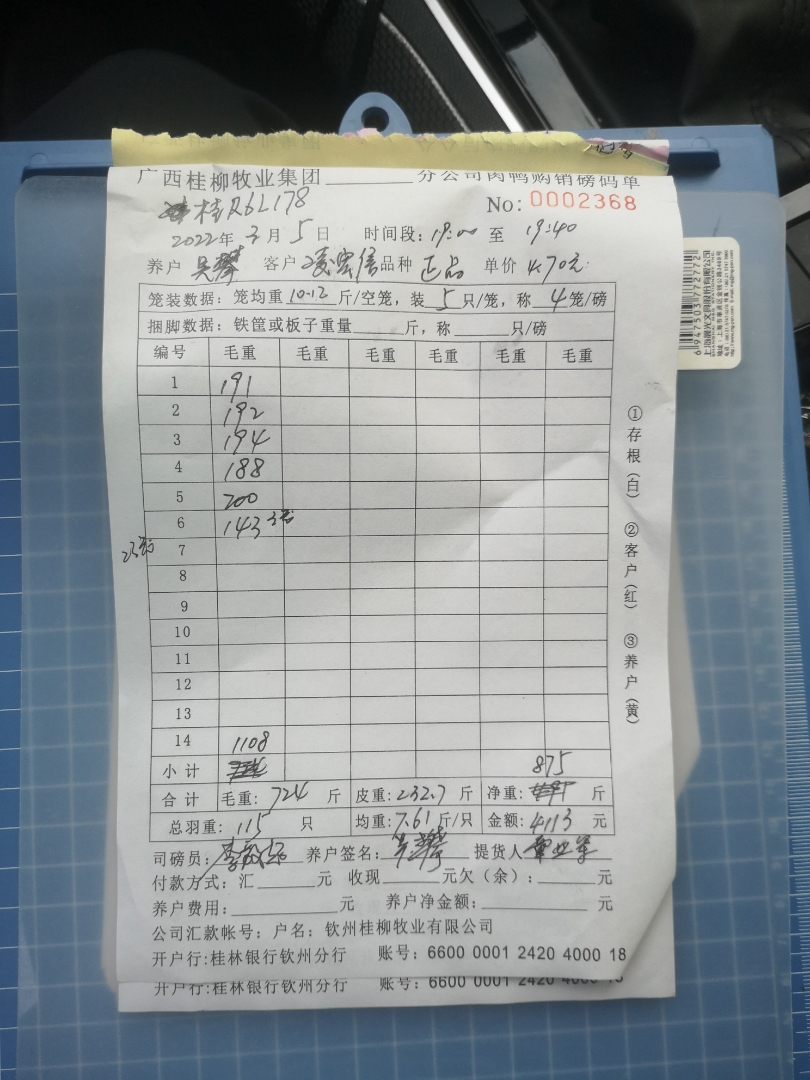 广西桂柳牧业集团______分公司肉鸭购销磅码单
桂R6L178 No: 0002368
2022年 3月 5日 时间段: 19:00 至 19:40
养户 吴攀 客户 品种 正品 单价 4.70元
笼装数据: 笼均重 10.12 斤/空笼, 装 5 只/笼, 称 4 笼/磅
捆脚数据: 铁筐或板子重量______斤, 称______只/磅
编号 毛重 毛重 毛重 毛重 毛重 毛重
1 191
2 192
3 194
4 188
5 200
6 143 3笼
23笼 7
8
9
10
11
12
13
14 1108
小计 875
合计 毛重: 724 斤 皮重: 232.7 斤 净重: 斤
总羽重: 115 只 均重: 7.61 斤/只 金额: 4113 元
司磅员: 养户签名: 吴攀 提货人
付款方式: 汇______元 收现______元欠(余): ______元
养户费用: ______元 养户净金额: ______元
公司汇款帐号: 户名: 钦州桂柳牧业有限公司
开户行:桂林银行钦州分行 账号: 6600 0001 2420 4000 18
开户行:桂林银行钦州分行 账号: 6600 0001 2420 4000 18
①存根(白) ②客户(红) ③养户(黄)
6 947503 772772
上海晨光文具股份有限公司